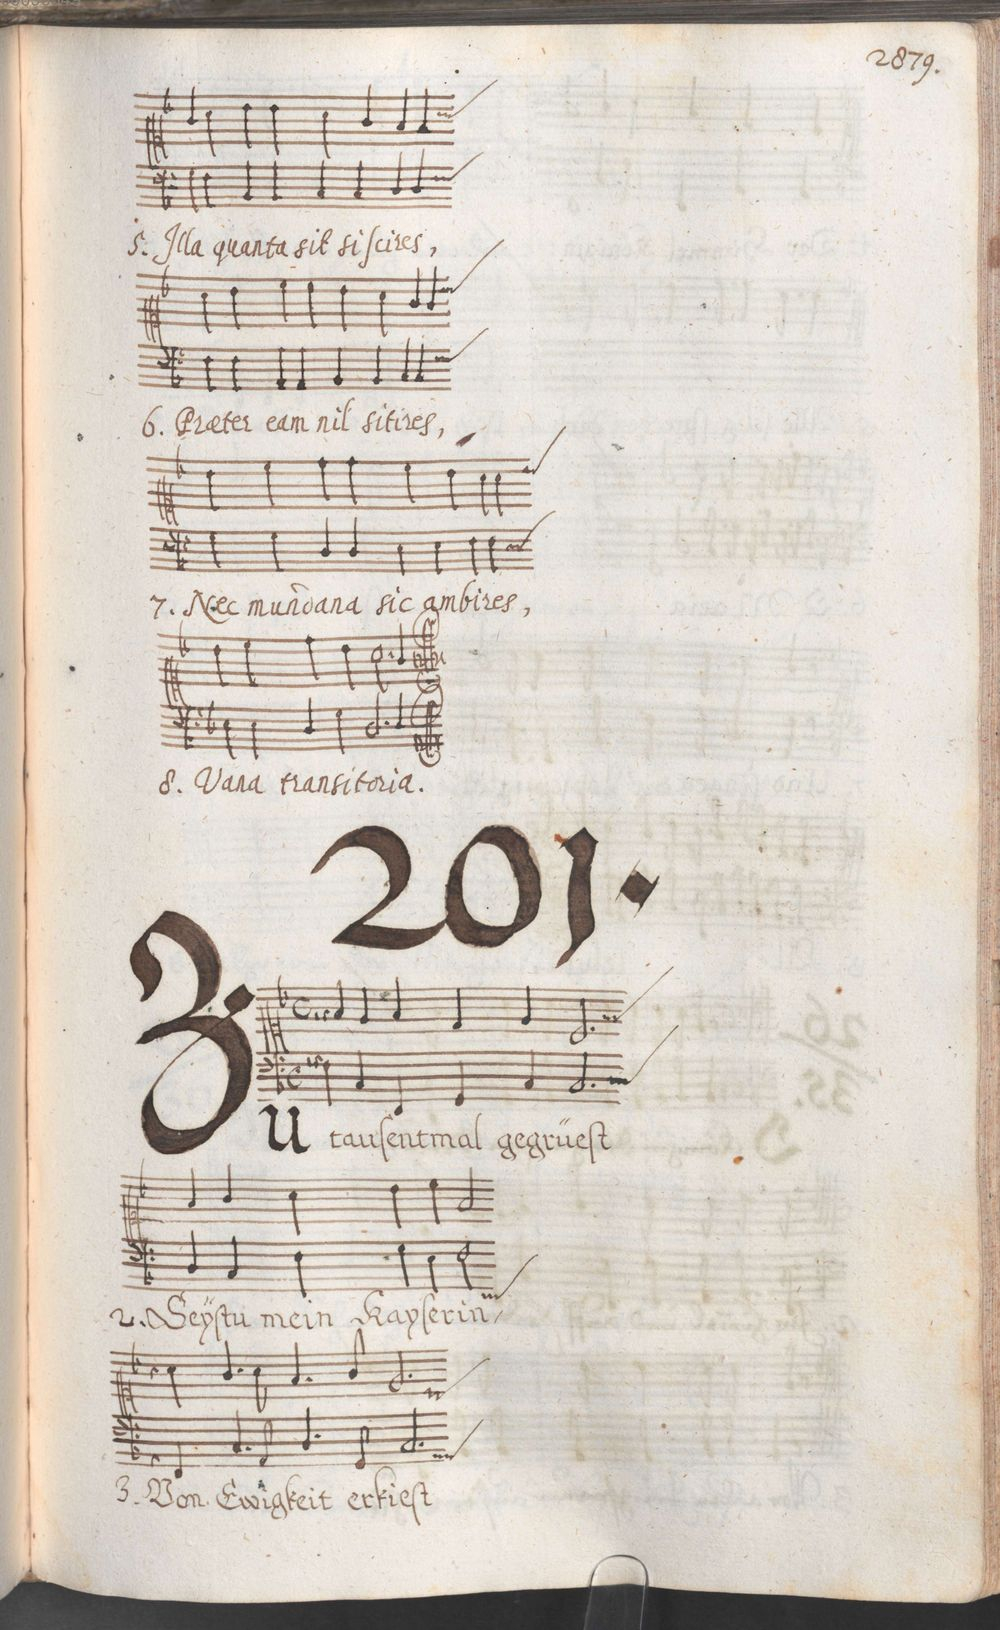 2879.
5. Illa quanta sit si scires,
6. Præter eam nil sitires,
7. Nec mun̄dana sic ambires,
8. Vana transitoria.
201.
Zu tausentmal gegrüest
2. Seÿstu mein Kayserin
3. Von Ewigkeit erkiest